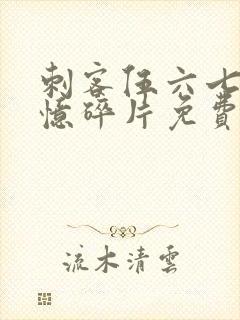 刺客伍六七
憶碎片免費
流木清雲